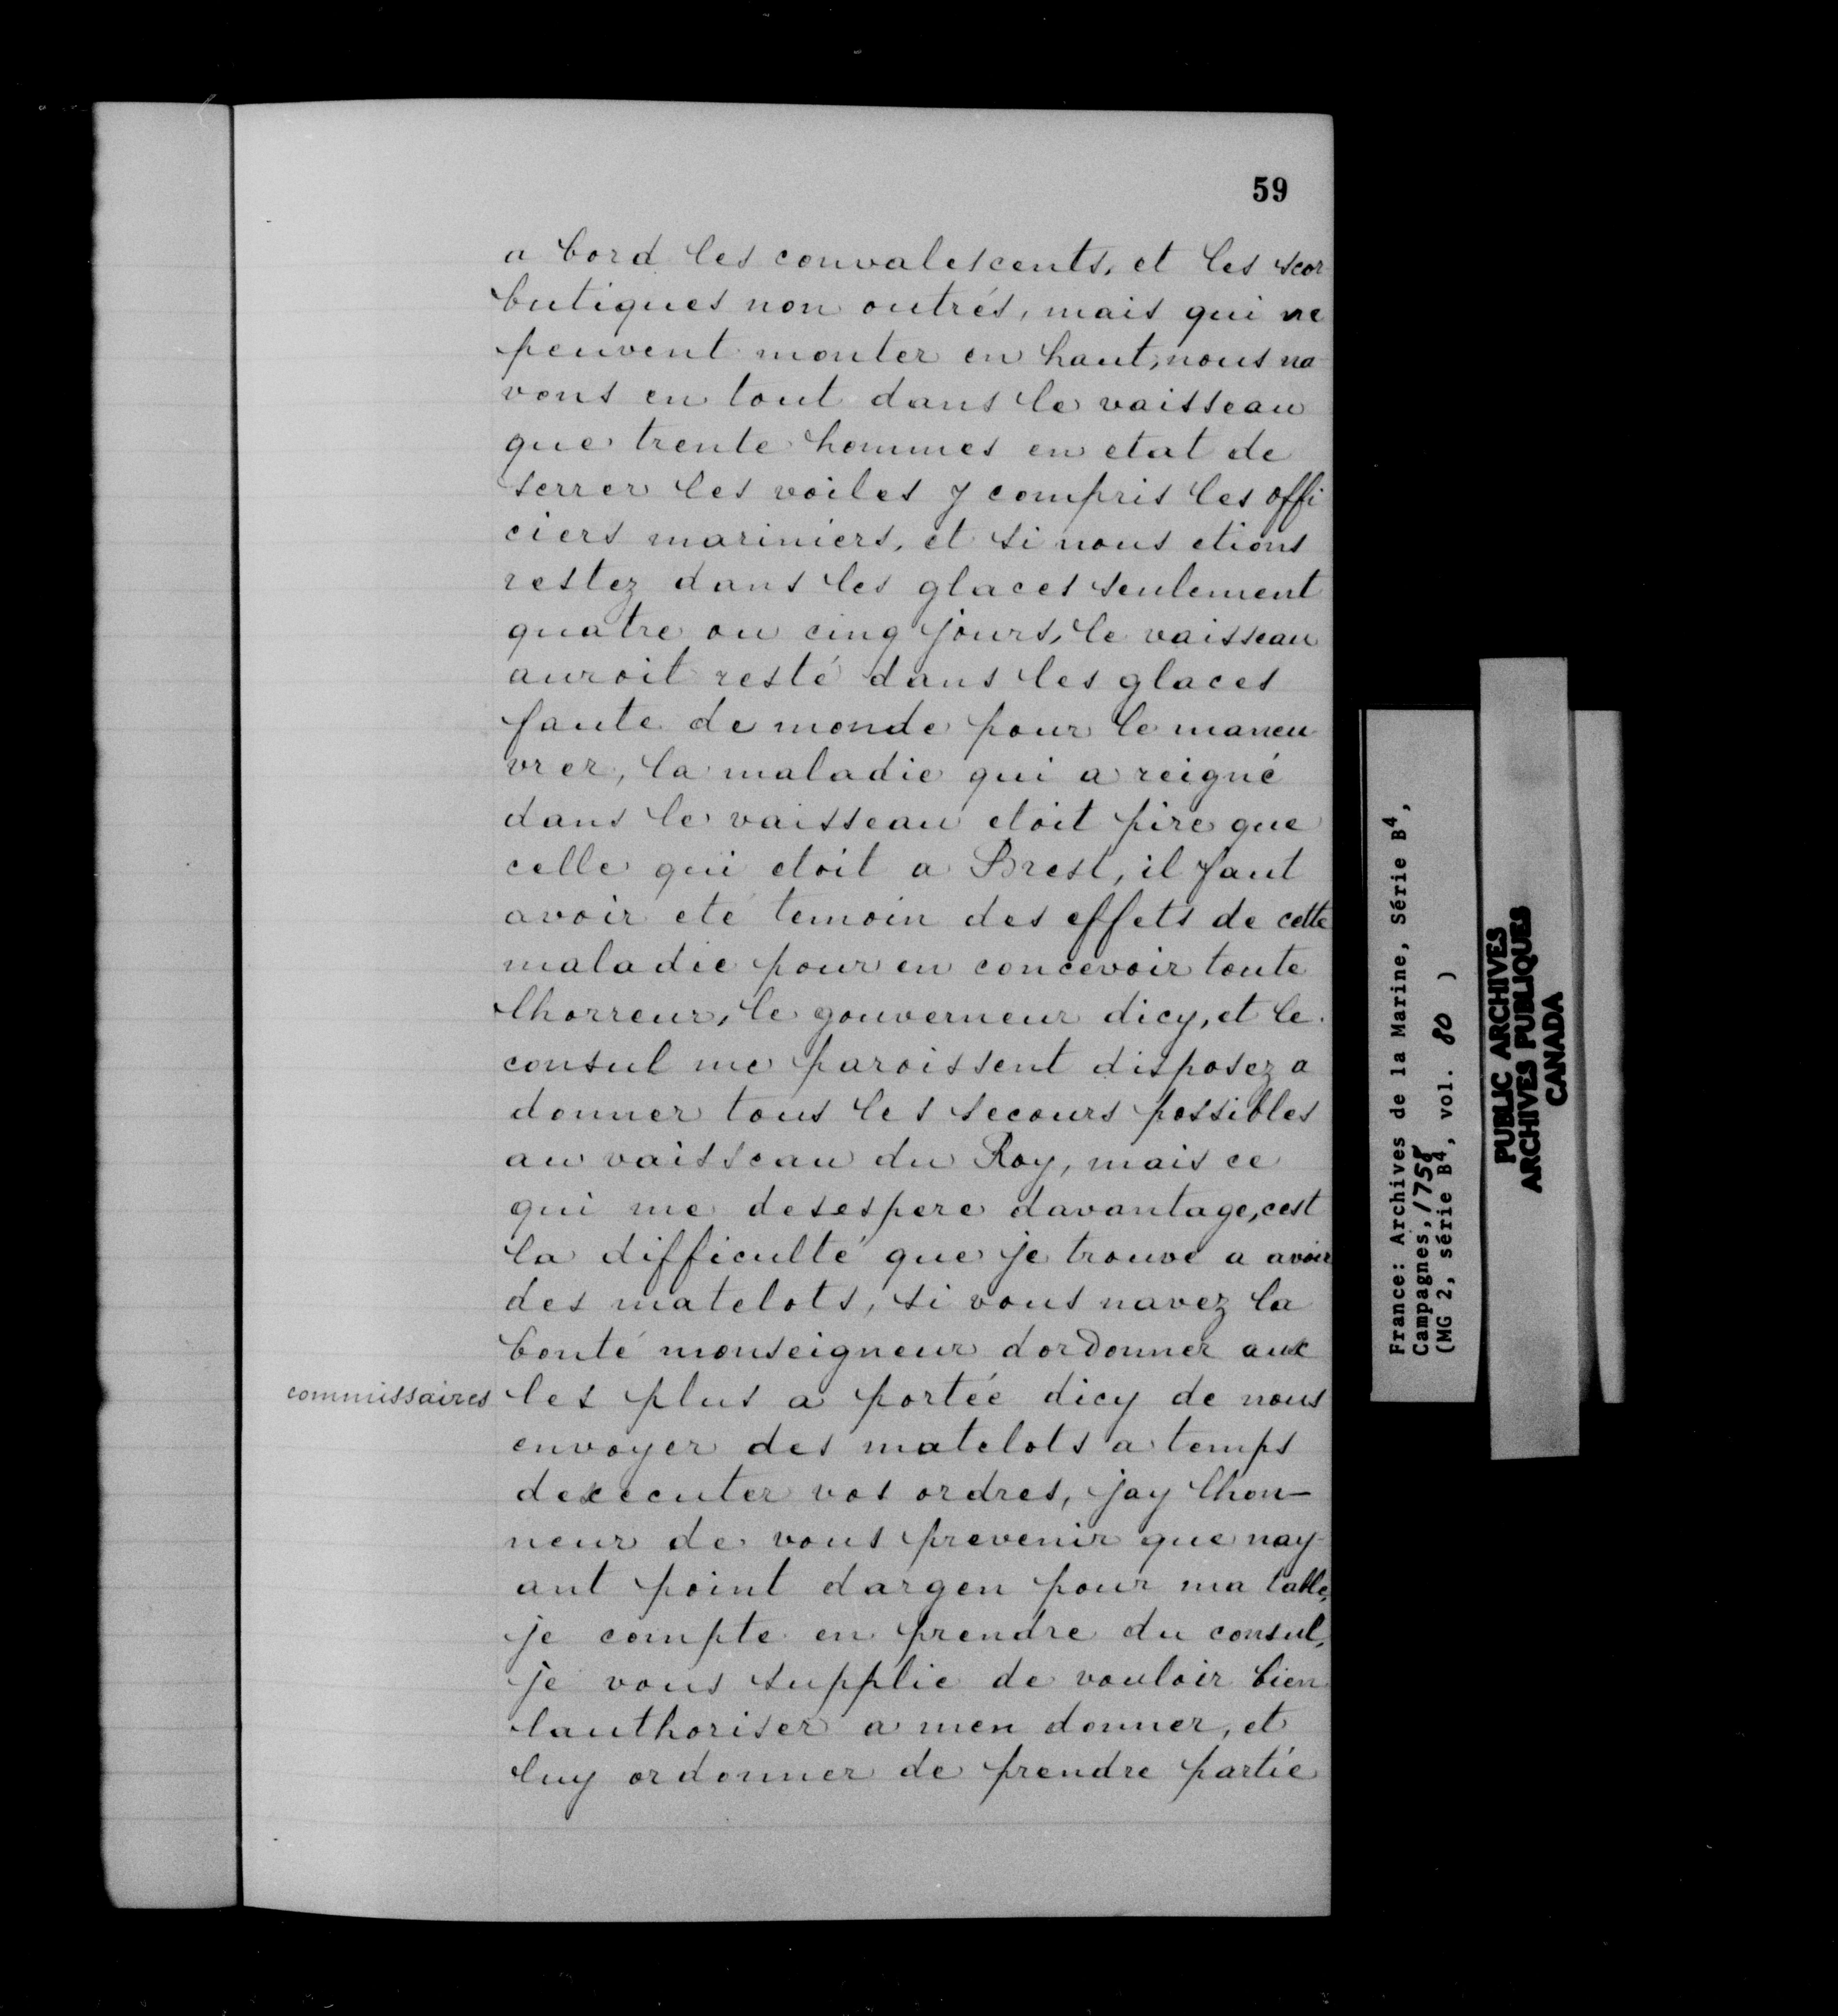 59
a bord les convalescents, et les scor
butiques non outrés, mais qui ne
peuvent monter en haut, nous na
vons en tout dans le vaisseau
que trente hommes en etat de
serrer les voiles y compris les offi
ciers mariniers, et si nous etions
restez dans les glaces seulement
quatre ou cinq jours, le vaisseau
auroit resté dans les glaces
faute de monde pour le maneu
vrer, la maladie qui a reigné
dans le vaisseau etoit pire que
celle qui etoit a Brest, il faut
avoir eté temoin des effets de cette
maladie pour en concevoir toute
lhorreur, le gouverneur dicy, et le
consul me paroissent disposez a
donner tous les secours possibles
au vaisseau du Roy, mais ce
qui me desespere davantage, cest
la difficulté que je trouve a avoir
des matelots, si vous navez la
bonté monseigneur dordonner aux
commissaires les plus a portée dicy de nous
envoyer des matelots a temps
dexecuter vos ordres, jay lhon-
neur de vous prevenir que nay-
ant point dargen pour ma table,
je compte en prendre du consul,
je vous supplie de vouloir bien
lauthoriser a men donner, et
luy ordonner de prendre partie
France: Archives de la Marine, Série B4,
Campagnes, 1758
(MG 2, série B4, vol. 80 )
PUBLIC ARCHIVES
ARCHIVES PUBLIQUES
CANADA